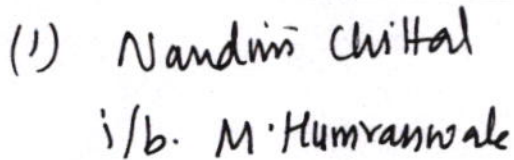 (1) Nandini Chittal
i/b. M. Humranwale